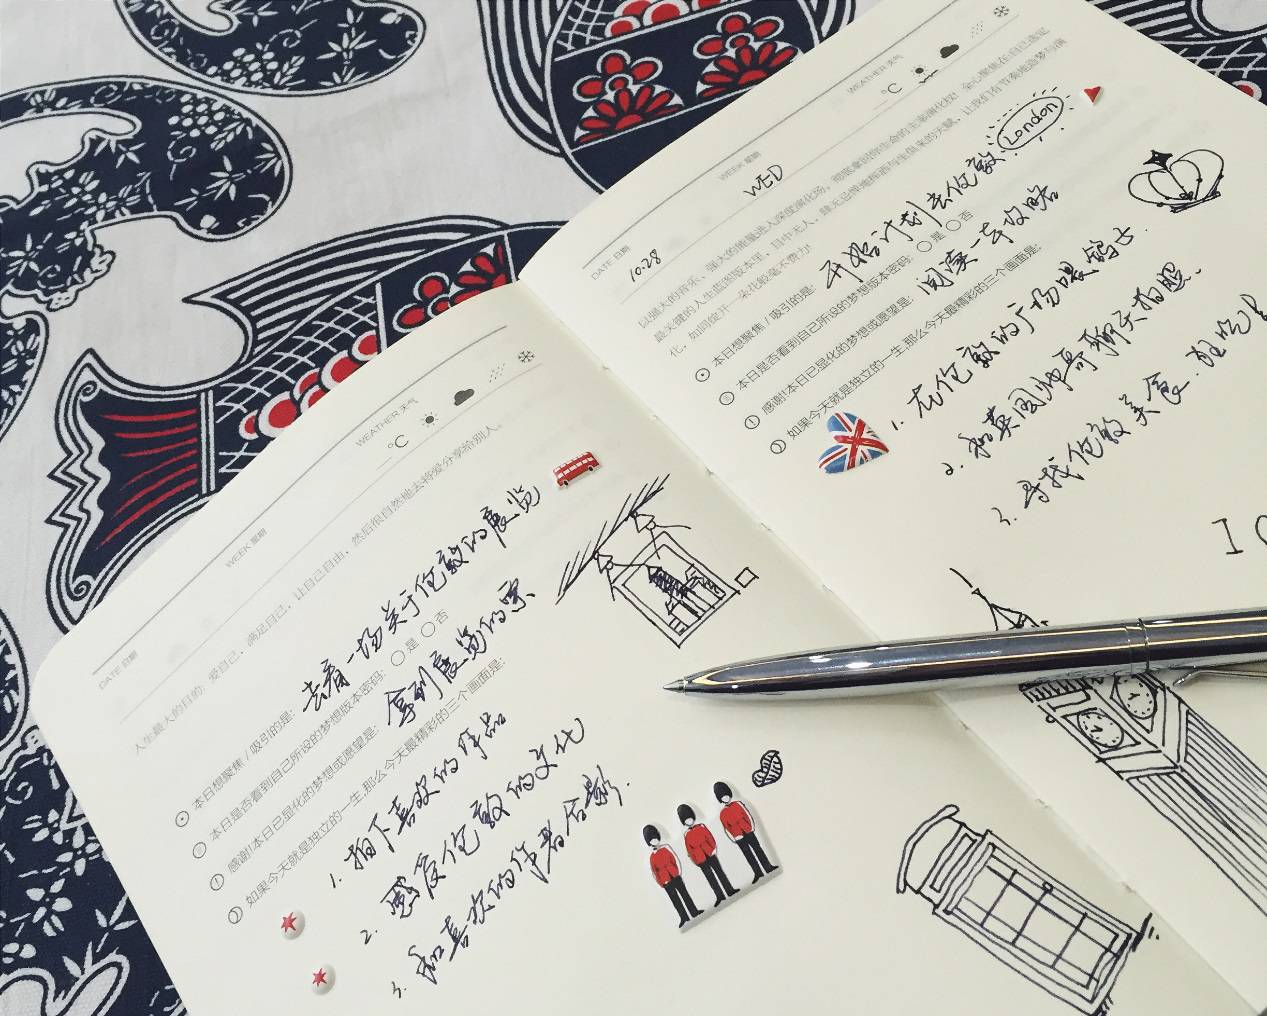 DATE 日期
WEEK 星期
WEATHER 天气
℃
人生最大的目的:爱自己,满足自己,让自己自由,然后很自然地去将爱分享给别人。
本日想聚焦/吸引的是: 去看一场关于伦敦的展览
本日是否看到自己所设的梦想版本密码: ○是 ○否
感谢!本日已显化的梦想或愿望是: 拿到展览的票
如果今天就是独立的一生,那么今天最精彩的三个画面是:
1. 拍下喜欢的作品
2. 感受伦敦的文化
3. 和喜欢的作者合影.
DATE 日期
10.28
WEEK 星期
WED
WEATHER 天气
℃
以强大的音乐、强大的能量进入深度演化场,彻底拿回你生命的主宰演化权!全心聚焦在自己选定
最关键的人生蓝图版本里,目中无人,肆无忌惮地挥洒与生俱来的天赋,让我们有节奏地造梦与演
化,如同绽开一朵花般毫不费力!
本日想聚焦/吸引的是: 开始计划去伦敦 London
本日是否看到自己所设的梦想版本密码: ○是 ○否
感谢!本日已显化的梦想或愿望是: 阅读一本攻略
如果今天就是独立的一生,那么今天最精彩的三个画面是:
1. 在伦敦的广场喂鸽子.
2. 和英国帅哥聊天拍照.
3. 寻找伦敦美食.狂吃
I